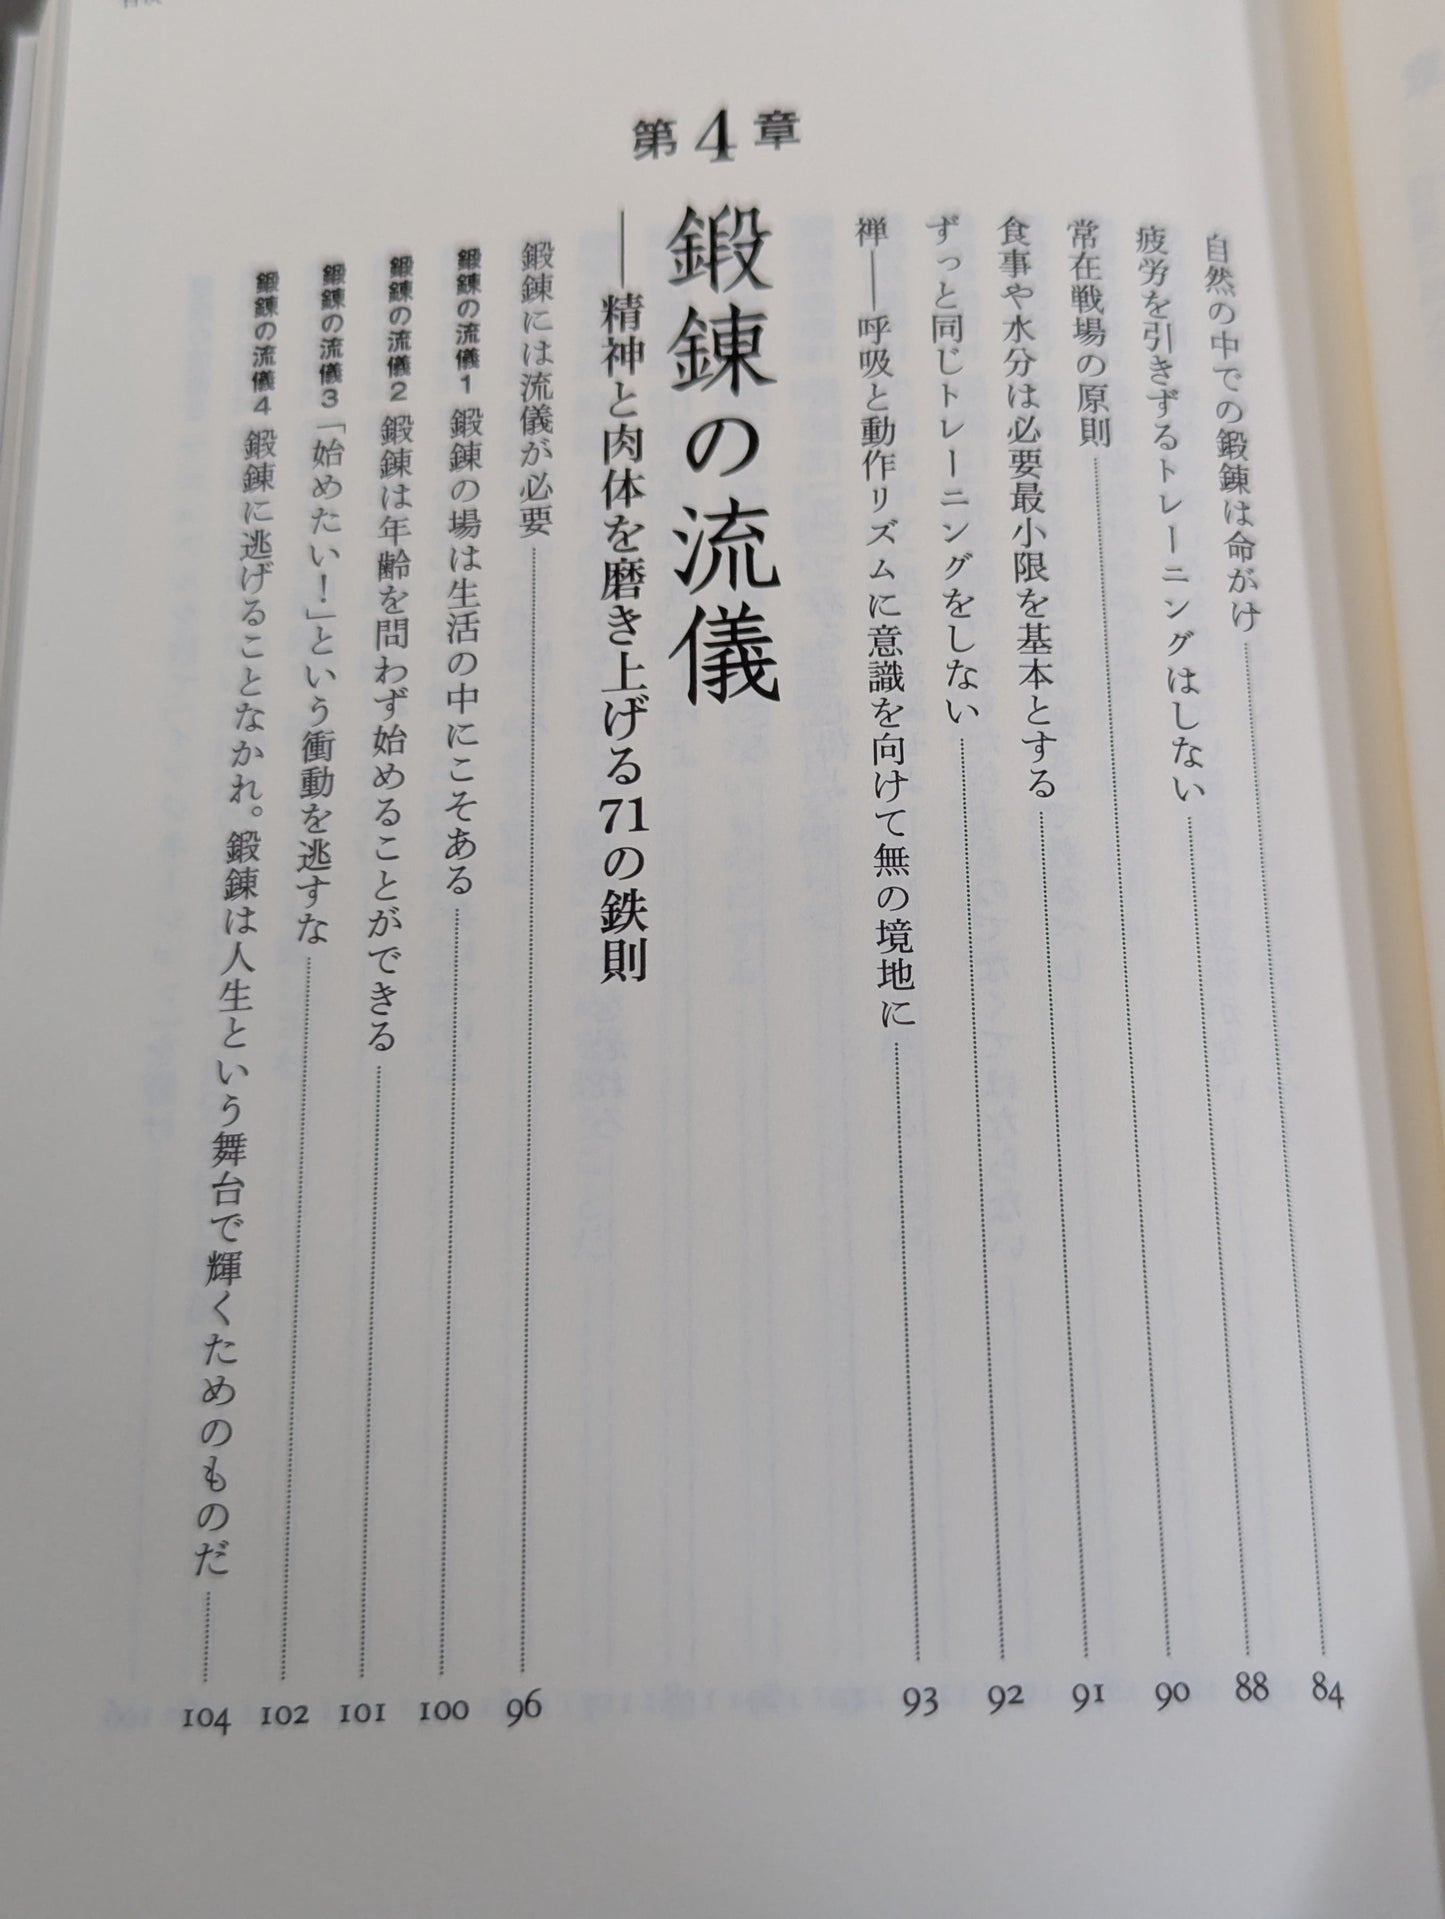 自然の中での鍛錬は命がけ 84
疲労を引きずるトレーニングはしない 88
常在戦場の原則 90
食事や水分は必要最小限を基本とする 91
ずっと同じトレーニングをしない 92
禅――呼吸と動作リズムに意識を向けて無の境地に 93
第4章
鍛錬の流儀
――精神と肉体を磨き上げる71の鉄則
鍛錬には流儀が必要 96
鍛錬の流儀1 鍛錬の場は生活の中にこそある 100
鍛錬の流儀2 鍛錬は年齢を問わず始めることができる 101
鍛錬の流儀3 「始めたい！」という衝動を逃すな 102
鍛錬の流儀4 鍛錬に逃げることなかれ。鍛錬は人生という舞台で輝くためのものだ 104